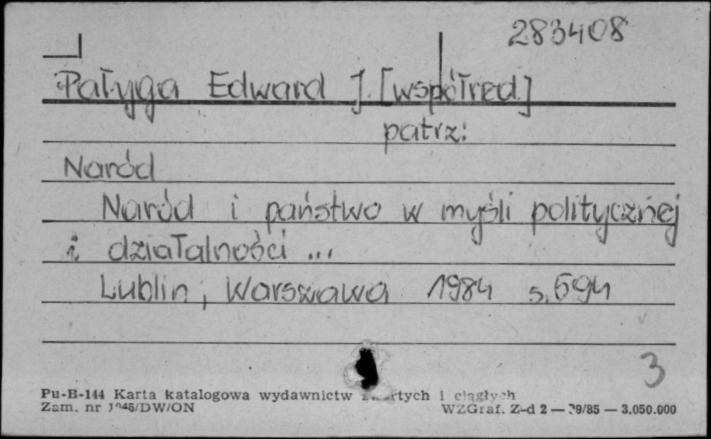 283408
Pałyga Edward J. [współred.]
patrz:
Naród
Naród i państwo w myśli politycznej
i działalności ...
Lublin, Warszawa 1984 s. 594
3
Pu-B-144 Karta katalogowa wydawnictw i ciągłych
Zam. nr WZGraf. Z-d 2 — — 3.050.000